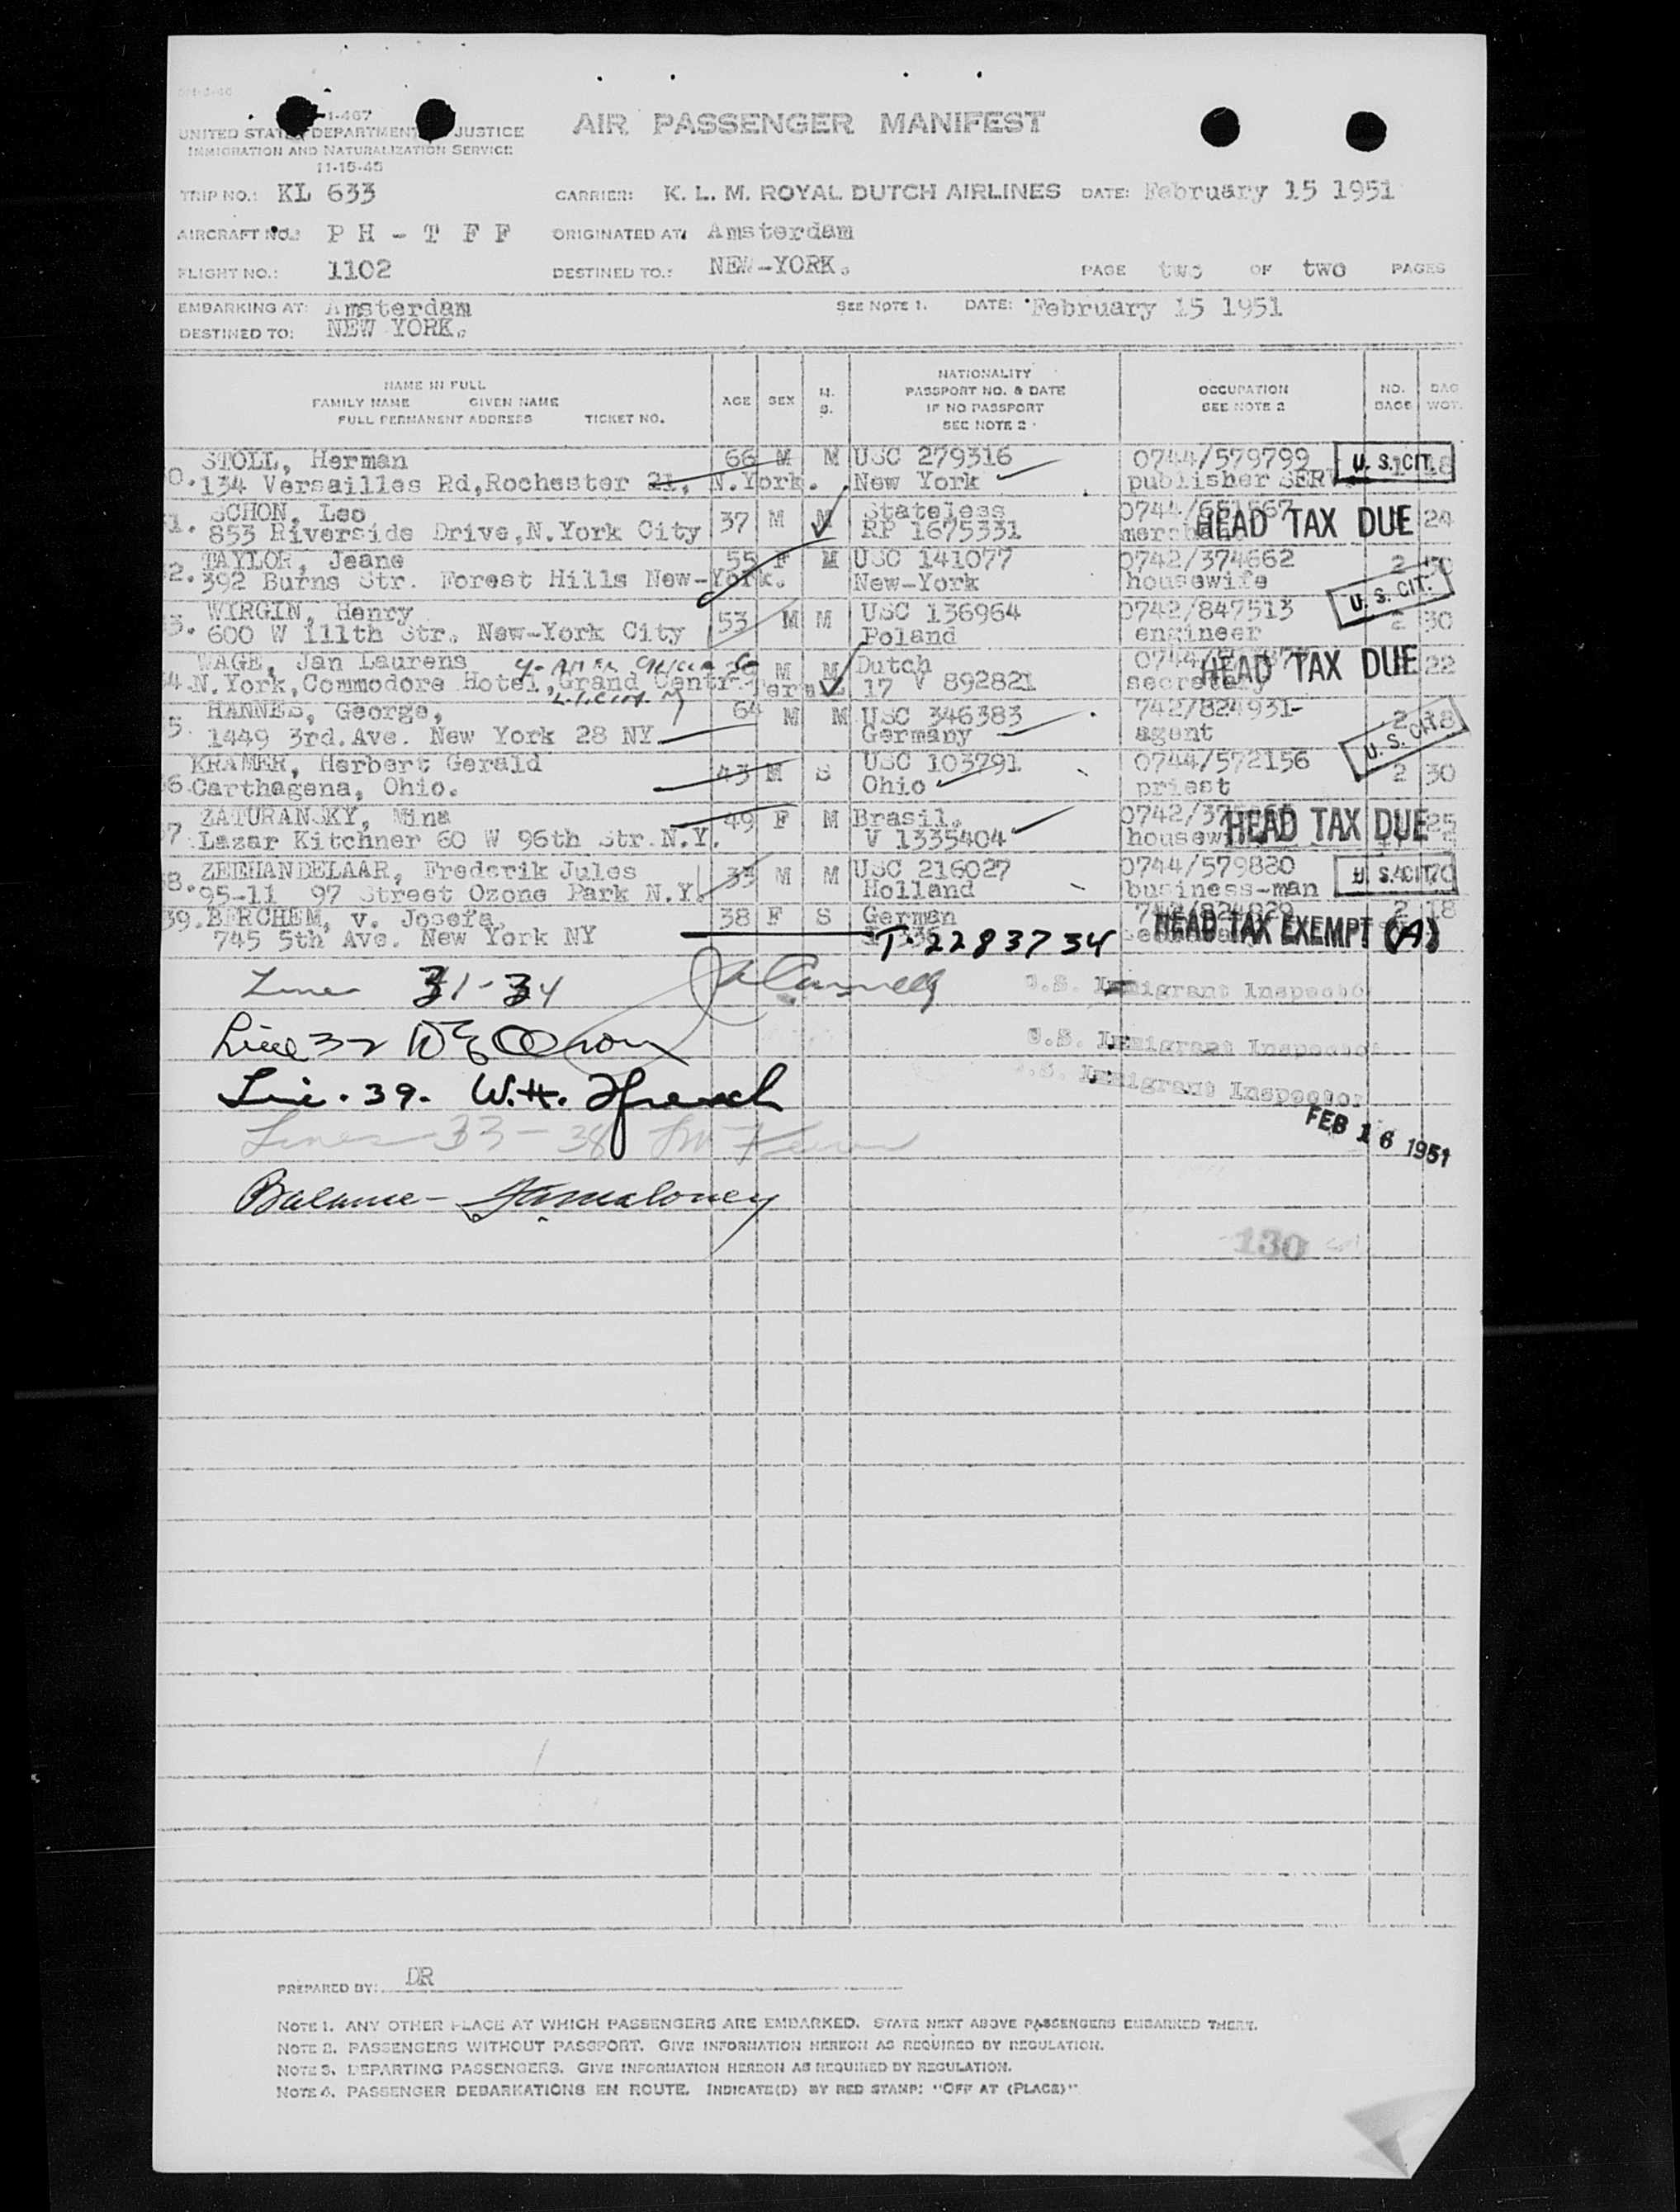 1-467
UNITED STATES DEPARTMENT OF JUSTICE
IMMIGRATION AND NATURALIZATION SERVICE
11-15-45
AIR PASSENGER MANIFEST
TRIP NO.: KL 633 CARRIER: K. L. M. ROYAL DUTCH AIRLINES DATE: February 15 1951
AIRCRAFT NO.: PH - T F F ORIGINATED AT: Amsterdam
FLIGHT NO.: 1102 DESTINED TO.: NEW-YORK. PAGE two OF two PAGES
EMBARKING AT: Amsterdam SEE NOTE 1. DATE: February 15 1951
DESTINED TO: NEW YORK.
NAME IN FULL
FAMILY NAME GIVEN NAME
FULL PERMANENT ADDRESS TICKET NO.
AGE SEX M. S.
NATIONALITY
PASSPORT NO. & DATE
IF NO PASSPORT
SEE NOTE 2
OCCUPATION
SEE NOTE 2
NO. BAGS
BAG WGT.
STOLL, Herman 66 M M USC 279316 0744/579799 U. S. CIT. 18
0. 134 Versailles Rd, Rochester 21, N.York. New York publisher
SCHON, Leo 37 M M Stateless
1. 853 Riverside Drive, N.York City RP 1675331 HEAD TAX DUE 24
TAYLOR, Jeane 55 F M USC 141077 0742/374662 2
2. 392 Burns Str. Forest Hills New-York. New-York housewife U. S. CIT.
WIRGIN, Henry 53 M M USC 136964 0742/847513
3. 600 W 111th Str. New-York City Poland engineer 2 30
WAGE, Jan Laurens M M Dutch HEAD TAX DUE 22
4. N.York, Commodore Hotel, Grand Centr. Term. 17 V 892821 secretary
HANNES, George, 64 M M USC 346383 742/824931- 2 18
5. 1449 3rd. Ave. New York 28 NY Germany agent U. S. CIT.
KRAMER, Herbert Gerald 43 M S USC 103791 0744/572156
6. Carthagena, Ohio. Ohio priest 2 30
ZATURANSKY, Mina 49 F M Brasil. HEAD TAX DUE 25
7. Lazar Kitchner 60 W 96th Str. N.Y. V 1335404
ZEEHANDELAAR, Frederik Jules 35 M M USC 216027 0744/579820
8. 95-11 97 Street Ozone Park N.Y. Holland business-man U. S. CIT.
39. BERCHEM, v. Josefa, 38 F S German 742/824929 2 18
745 5th Ave. New York NY T-2283734 HEAD TAX EXEMPT (A)
Lines 31-34 U.S. Immigrant Inspector
Line 32 U.S. Immigrant Inspector
Line. 39. W.H. French U.S. Immigrant Inspector
Lines 33 - 38
FEB 16 1951
Balance -
130
PREPARED BY: DR
NOTE 1. ANY OTHER PLACE AT WHICH PASSENGERS ARE EMBARKED. STATE NEXT ABOVE PASSENGERS EMBARKED THERE.
NOTE 2. PASSENGERS WITHOUT PASSPORT. GIVE INFORMATION HEREON AS REQUIRED BY REGULATION.
NOTE 3. DEPARTING PASSENGERS. GIVE INFORMATION HEREON AS REQUIRED BY REGULATION.
NOTE 4. PASSENGER DEBARKATIONS EN ROUTE. INDICATE(D) BY RED STAMP: "OFF AT (PLACE)"